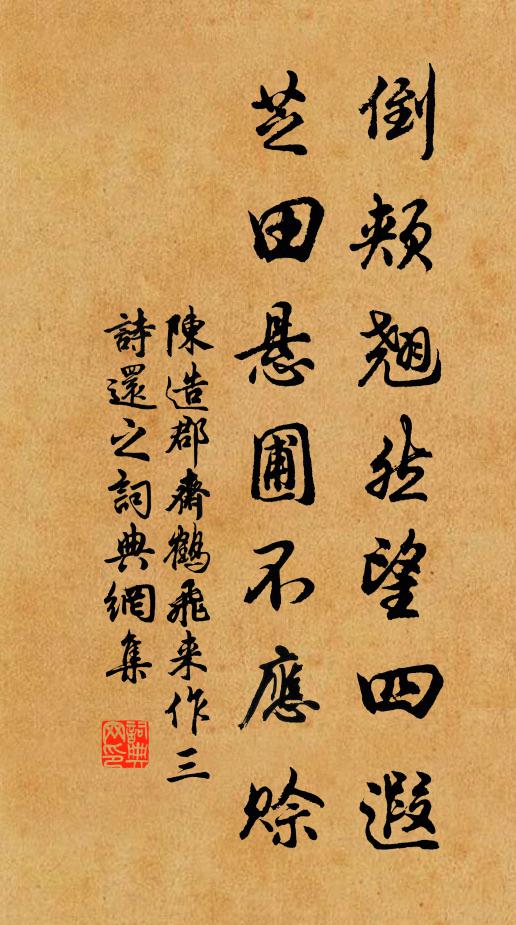 倒頰翹然望四遐
芝田悬圃不應賒
陳造郡齋鶴飛来作三
詩還之詞典網集
詞典網印